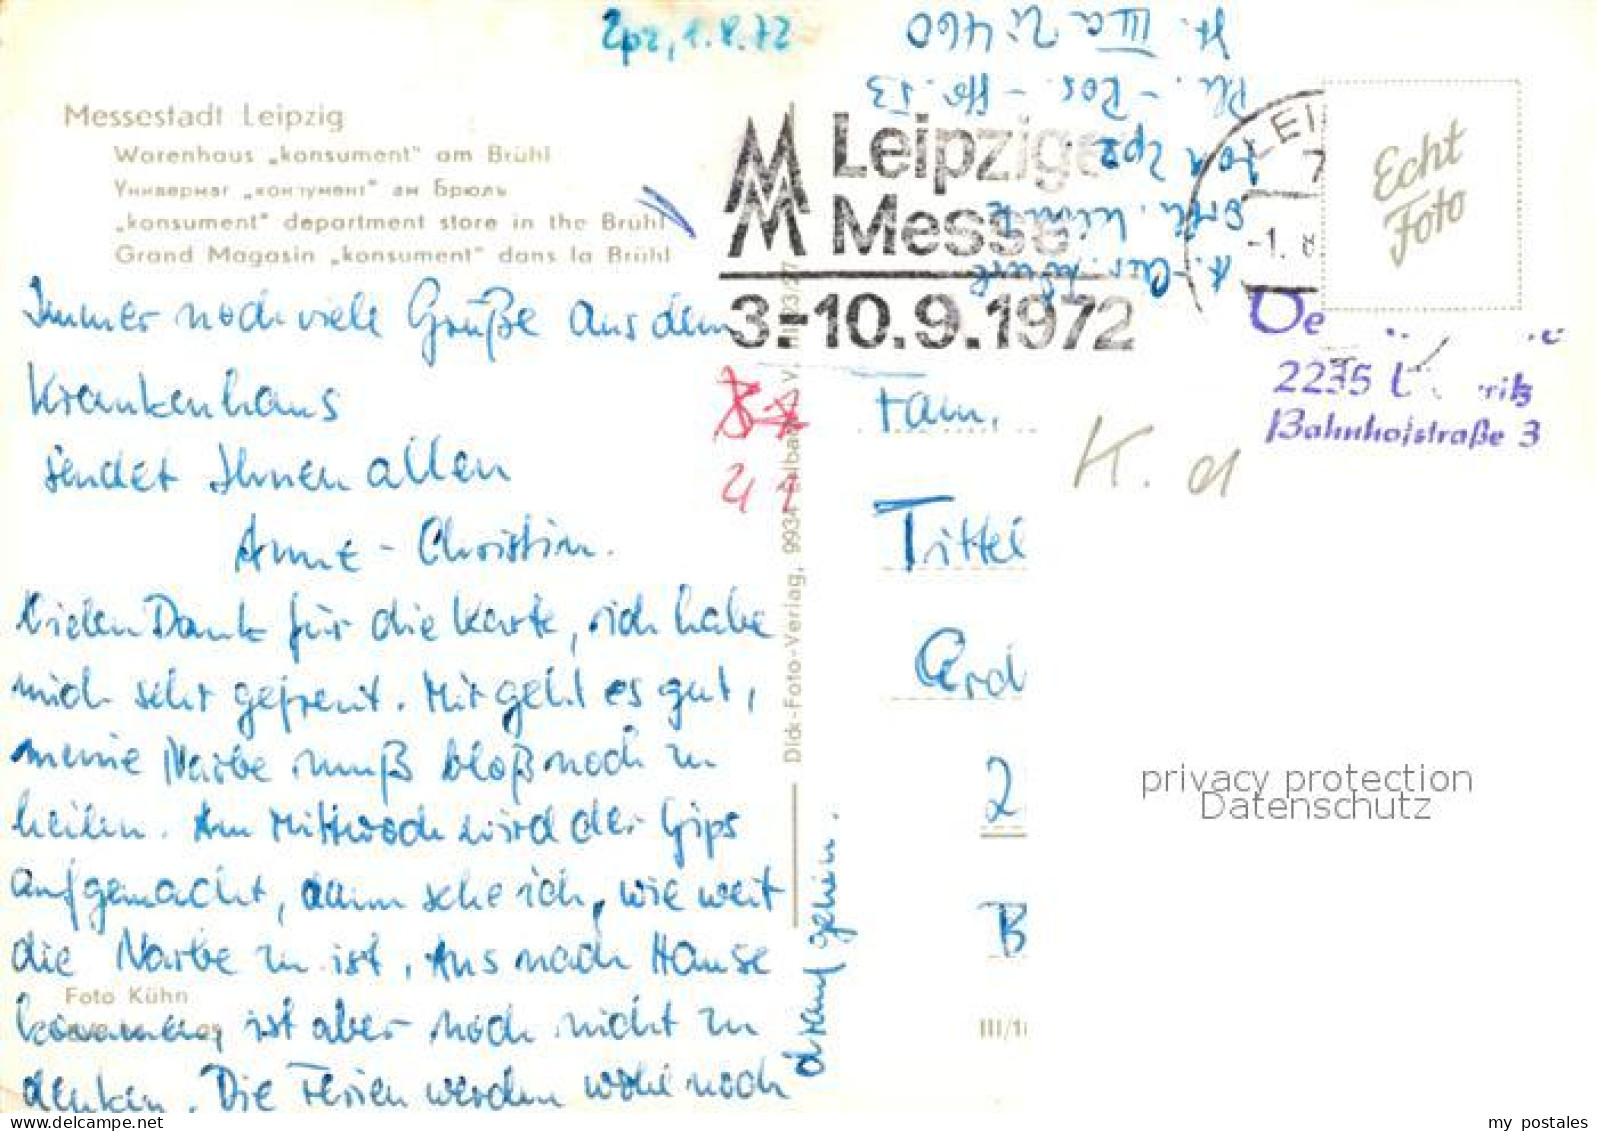 Lpz, 1.8.72
Messestadt Leipzig
Warenhaus „konsument" am Brühl
Универмаг „консумент" ам Брюль
„konsument" department store in the Brühl
Grand Magasin „konsument" dans la Brühl
Immer noch viele Grüße aus dem
Krankenhaus
sendet Ihnen allen
Anne-Christin.
Vielen Dank für die Karte, ich habe
mich sehr gefreut. Mir geht es gut,
meine Narbe muß bloß noch zu
heilen. Am Mittwoch wird der Gips
aufgemacht, dann sehe ich, wie weit
die Narbe zu ist. Ans nach Hause
kommen ist aber noch nicht zu
denken. Die Ferien werden wohl noch
drauf gehen.
Foto Kühn
Leipziger
Messe
3.-10.9.1972
LEI
7
-1. 8
Echt
Foto
St. IIIa Zi 460
Ph.-Ros.-Str. 53
701 Lpz
Orth. Klinik
2255
Bahnhofstraße 3
Dick-Foto-Verlag, 9934
Fam.
K. a
Tittel
2
B
III/1
privacy protection
Datenschutz
delcampe.net
my_postales